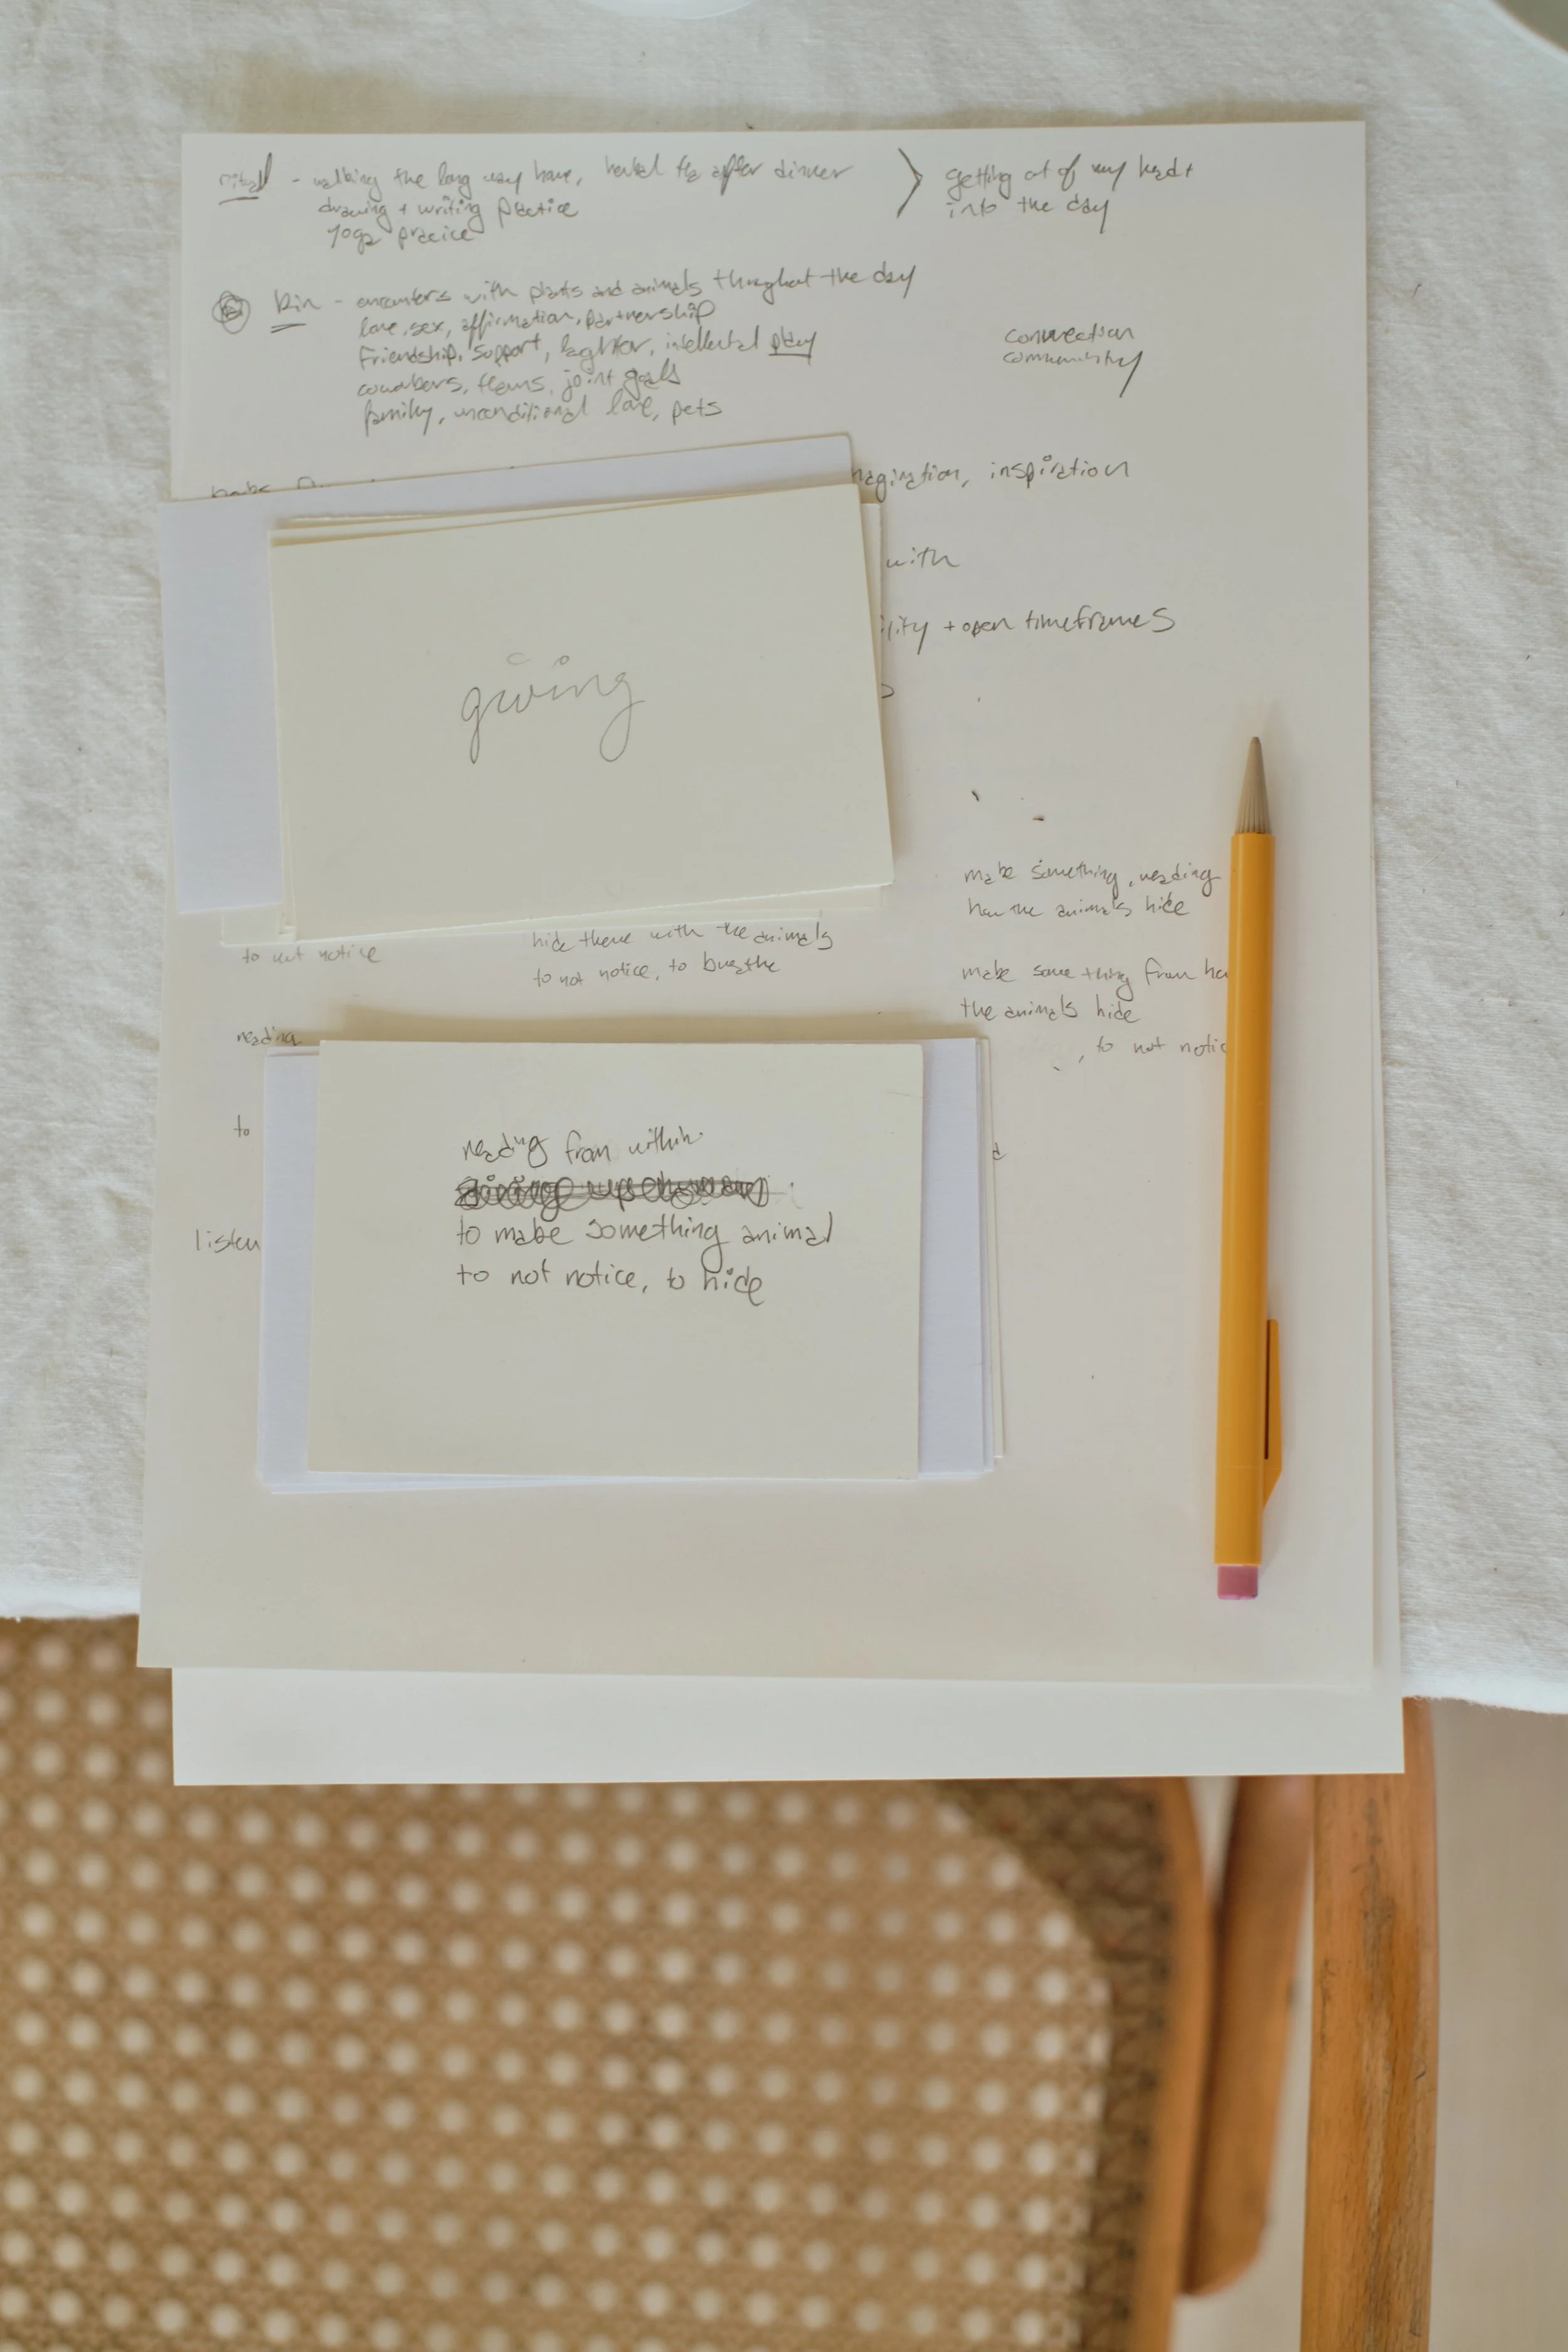 ritual - walking the long way home, herbal tea after dinner
drawing + writing practice
yoga pracice
getting out of my head +
into the day
kin - encounters with plants and animals throughout the day
love, sex, affirmation, partnership
friendship, support, laughter, intellectual play
coworkers, teams, joint goals
family, unconditional love, pets
connection
community
inspiration
with
+ open timeframes
giving
make something, reading
how the animals hide
to not notice
hide there with the animals
to not notice, to breathe
make some thing from
the animals hide
, to not
reading
to
listen
reading from within
to make something animal
to not notice, to hide